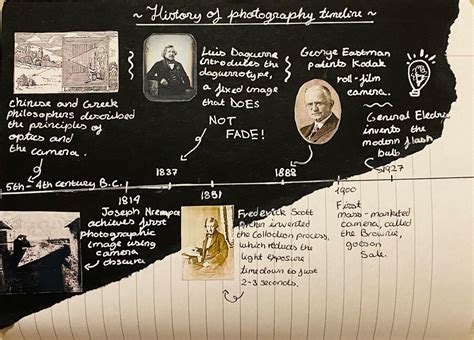 ~ History of photography timeline ~
Chinese and Greek
philosophers described
the principles of
optics and
the camera.
5th-4th century B.C.
Luis Daguerre
introduces the
daguerrotype,
a fixed image
that DOES
NOT
FADE!
1837
George Eastman
patents Kodak
roll-film
camera.
1888
General Electric
invents the
modern flash
bulb
1927
1814
Joseph
achieves first
photographic
image using
camera
obscura
1851
Frederick Scott
Archer invented
the Collodion process,
which reduces the
light exposure
time down to just
2-3 seconds.
1900
First
mass-marketed
camera, called
the Brownie,
goes on
Sale.